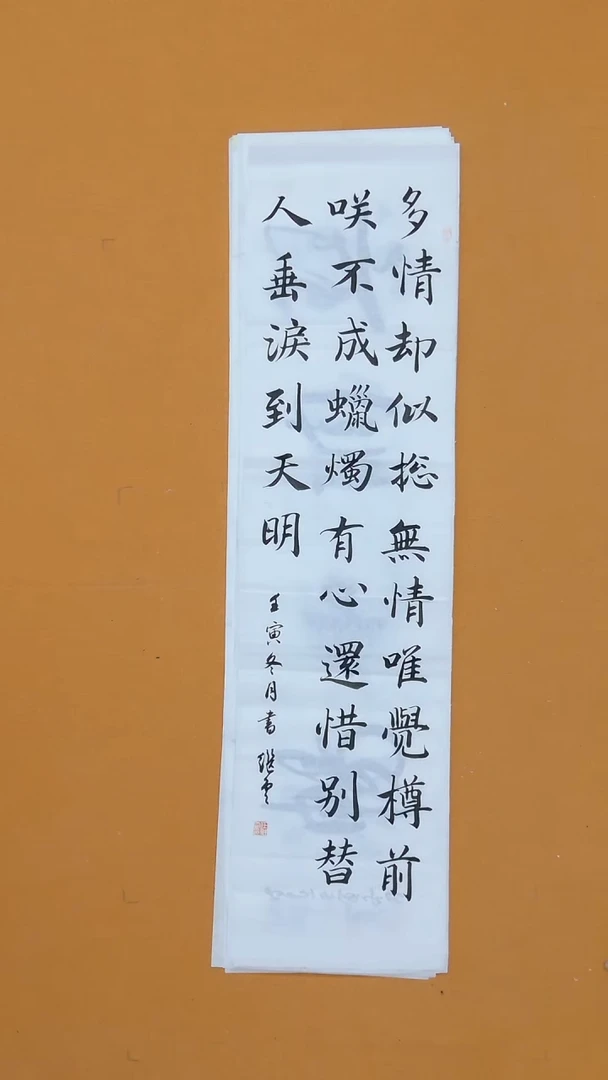 多情却似捴無情唯覺樽前
咲不成蠟燭有心還惜別替
人垂淚到天明
壬寅冬月書继雲